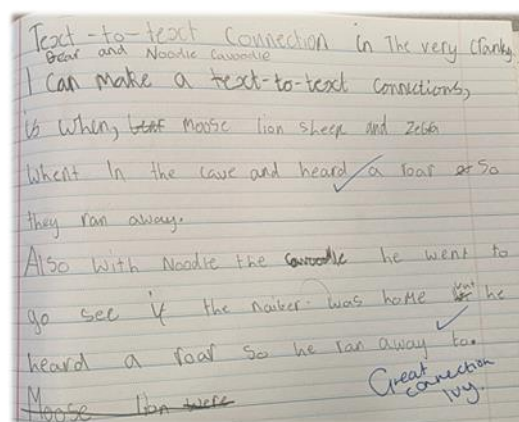 Text-to-text Connection in The very Cranky
Bear and Noodle Cavoodle
I can make a text-to-text connections,
is when, moose lion sheep and zebra
whent In the cave and heard a roar so
they ran away.
Also with Noodle the cavoodle he went to
go see if the was home but he
heard a roar so he ran away to.
Great
connection
Ivy.
Moose lion were